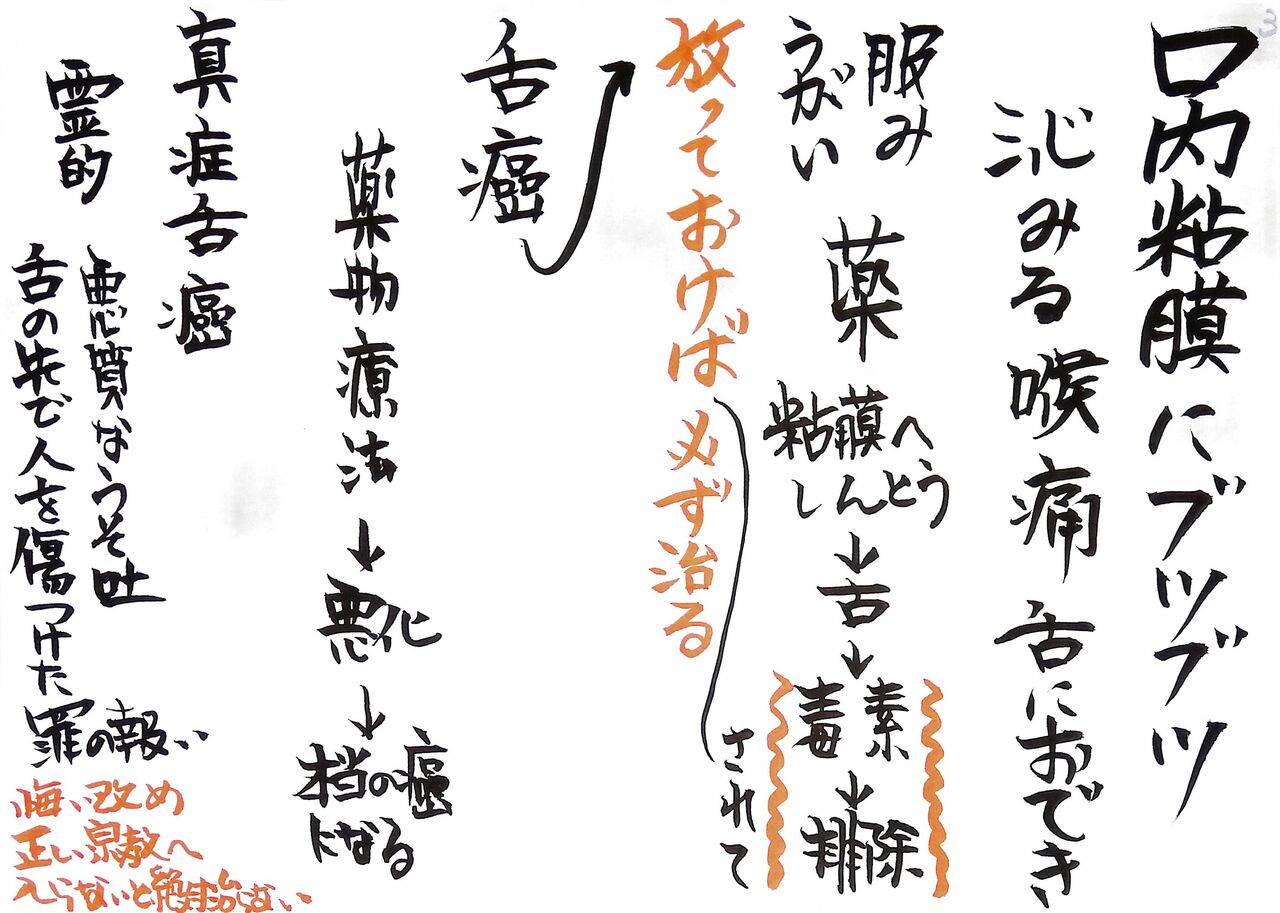 3
口内粘膜にブツブツ
沁みる 喉 痛 舌におでき
服み
うがい
薬
粘膜へ
しんとう
↓
舌
↓
毒素
↓
排除
されて
放っておけば 必ず治る
舌癌
薬物療法
↓
悪化
↓
本当の癌
になる
真症舌癌
霊的
悪質なうそ吐
舌の先で人を傷つけた
罪の報い
悔い改め
正い宗教へ
入らないと絶対治らない